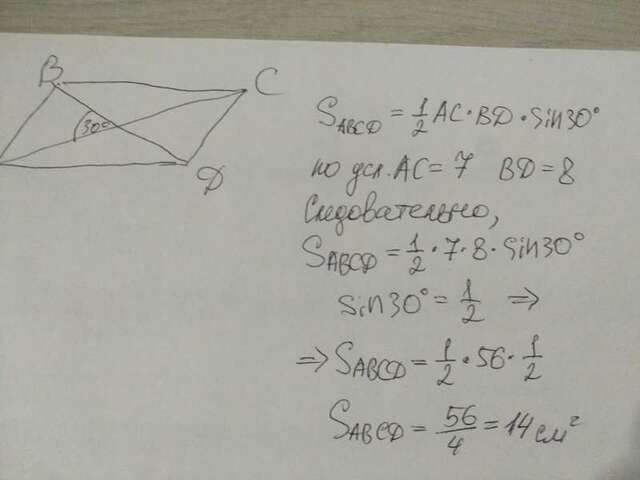 B
C
30°
D
S_ABCD = 1/2 AC · BD · Sin30°
по усл. AC = 7 BD = 8
Следовательно,
S_ABCD = 1/2 · 7 · 8 · Sin30°
Sin30° = 1/2 ⇒
⇒ S_ABCD = 1/2 · 56 · 1/2
S_ABCD = 56/4 = 14 см²